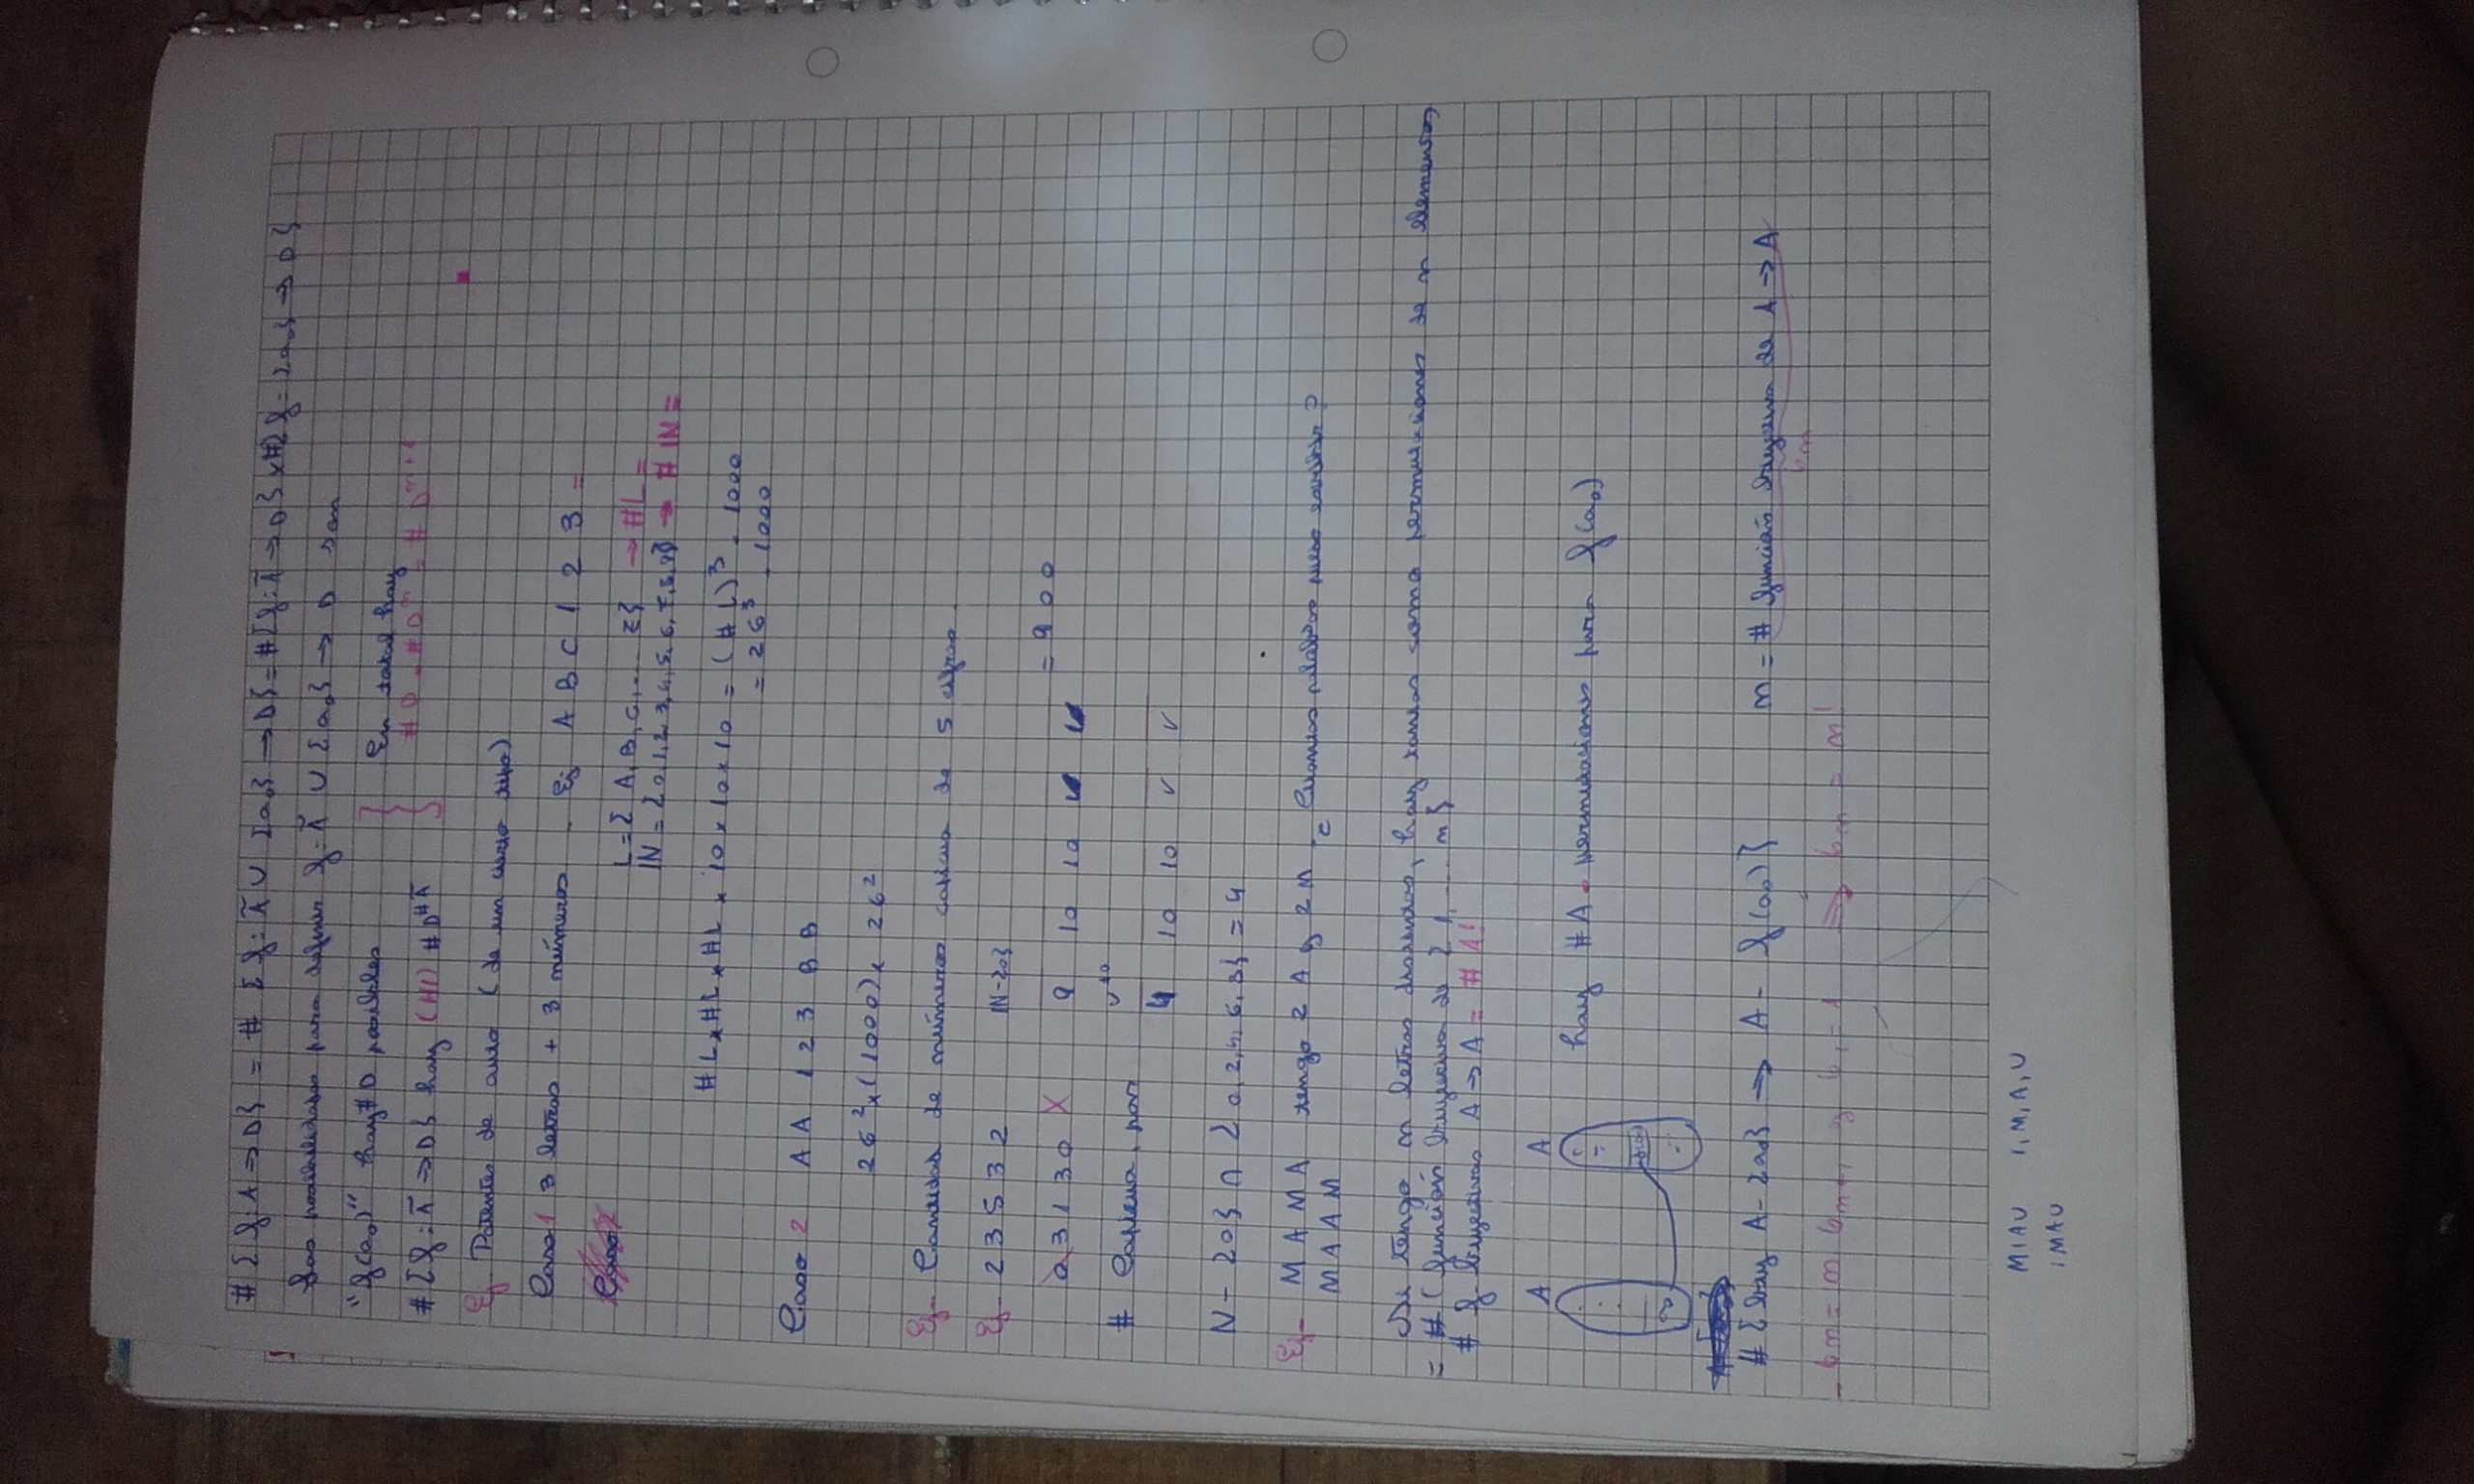 # { f: A → D} = # { f: Ã ∪ {a₀} → D} = #{f: Ã → D} x #{ f: {a₀} → D}
Las posibilidades para definir f: Ã ∪ {a₀} → D son
"f(a₀)" hay # D posibles
En total hay
# D . # Dⁿ = # Dⁿ⁺¹
# {f: Ã → D} hay (HI) # D^#Ã
Ej- Patentes de auto (de un cierto tipo)
Caso 1 3 letras + 3 números - Ej A B C 1 2 3 =
Caso
L = { A, B, C, ... Z} → #L =
IN = {0,1,2,3,4,5,6,7,8,9} → # IN =
#L x #L x #L x 10 x 10 x 10 = (# L)³ . 1000
= 26³ . 1000
Caso 2 A A 1 2 3 B B
26² x (1000) x 26²
Ej- Cantidad de números capicua de 5 cifras
Ej- 2 3 5 3 2 IN-{0}
0 3 1 3 0 X 9 10 10 ✓ ✓ = 900
# Capicua par
4 10 10 ✓ ✓
N - {0} ∩ {0,2,4,6,8} = 4
Ej- M A M A tengo 2 A y 2 M - ¿ Cuantas palabras puedo escribir?
M A A M
Si tengo n letras distintas, hay tantas como permutaciones de n elementos
= # (función biyectiva de { 1, ... n}
# f biyectivas A → A = # A!
A A
hay # A - permutaciones para f(a₀)
a₀ f(a₀)
# {biy A - {a₀} → A - f(a₀)} n = # función biyectiva de A → A
bn
- bn = n bn-1 y b₁ = 1 ⇒ bn = n!
MIAU I, M, A, U
IMAU